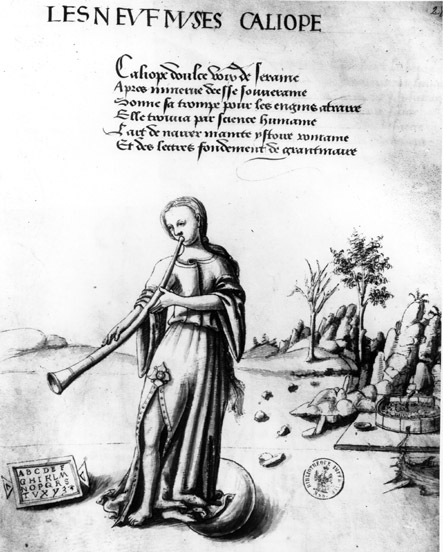 LES NEVF MVSES CALIOPE
Caliope doulce voix de seraine
Apres minerve deesse souveraine
Sonne sa trompe pour les engins atraire
Elle trouva par science humaine
Lart de narrer mainte ystoire romaine
Et des lettres fondement de grammaire
ABCDEF
GHIKLM
NOPQRS
TVXYZ